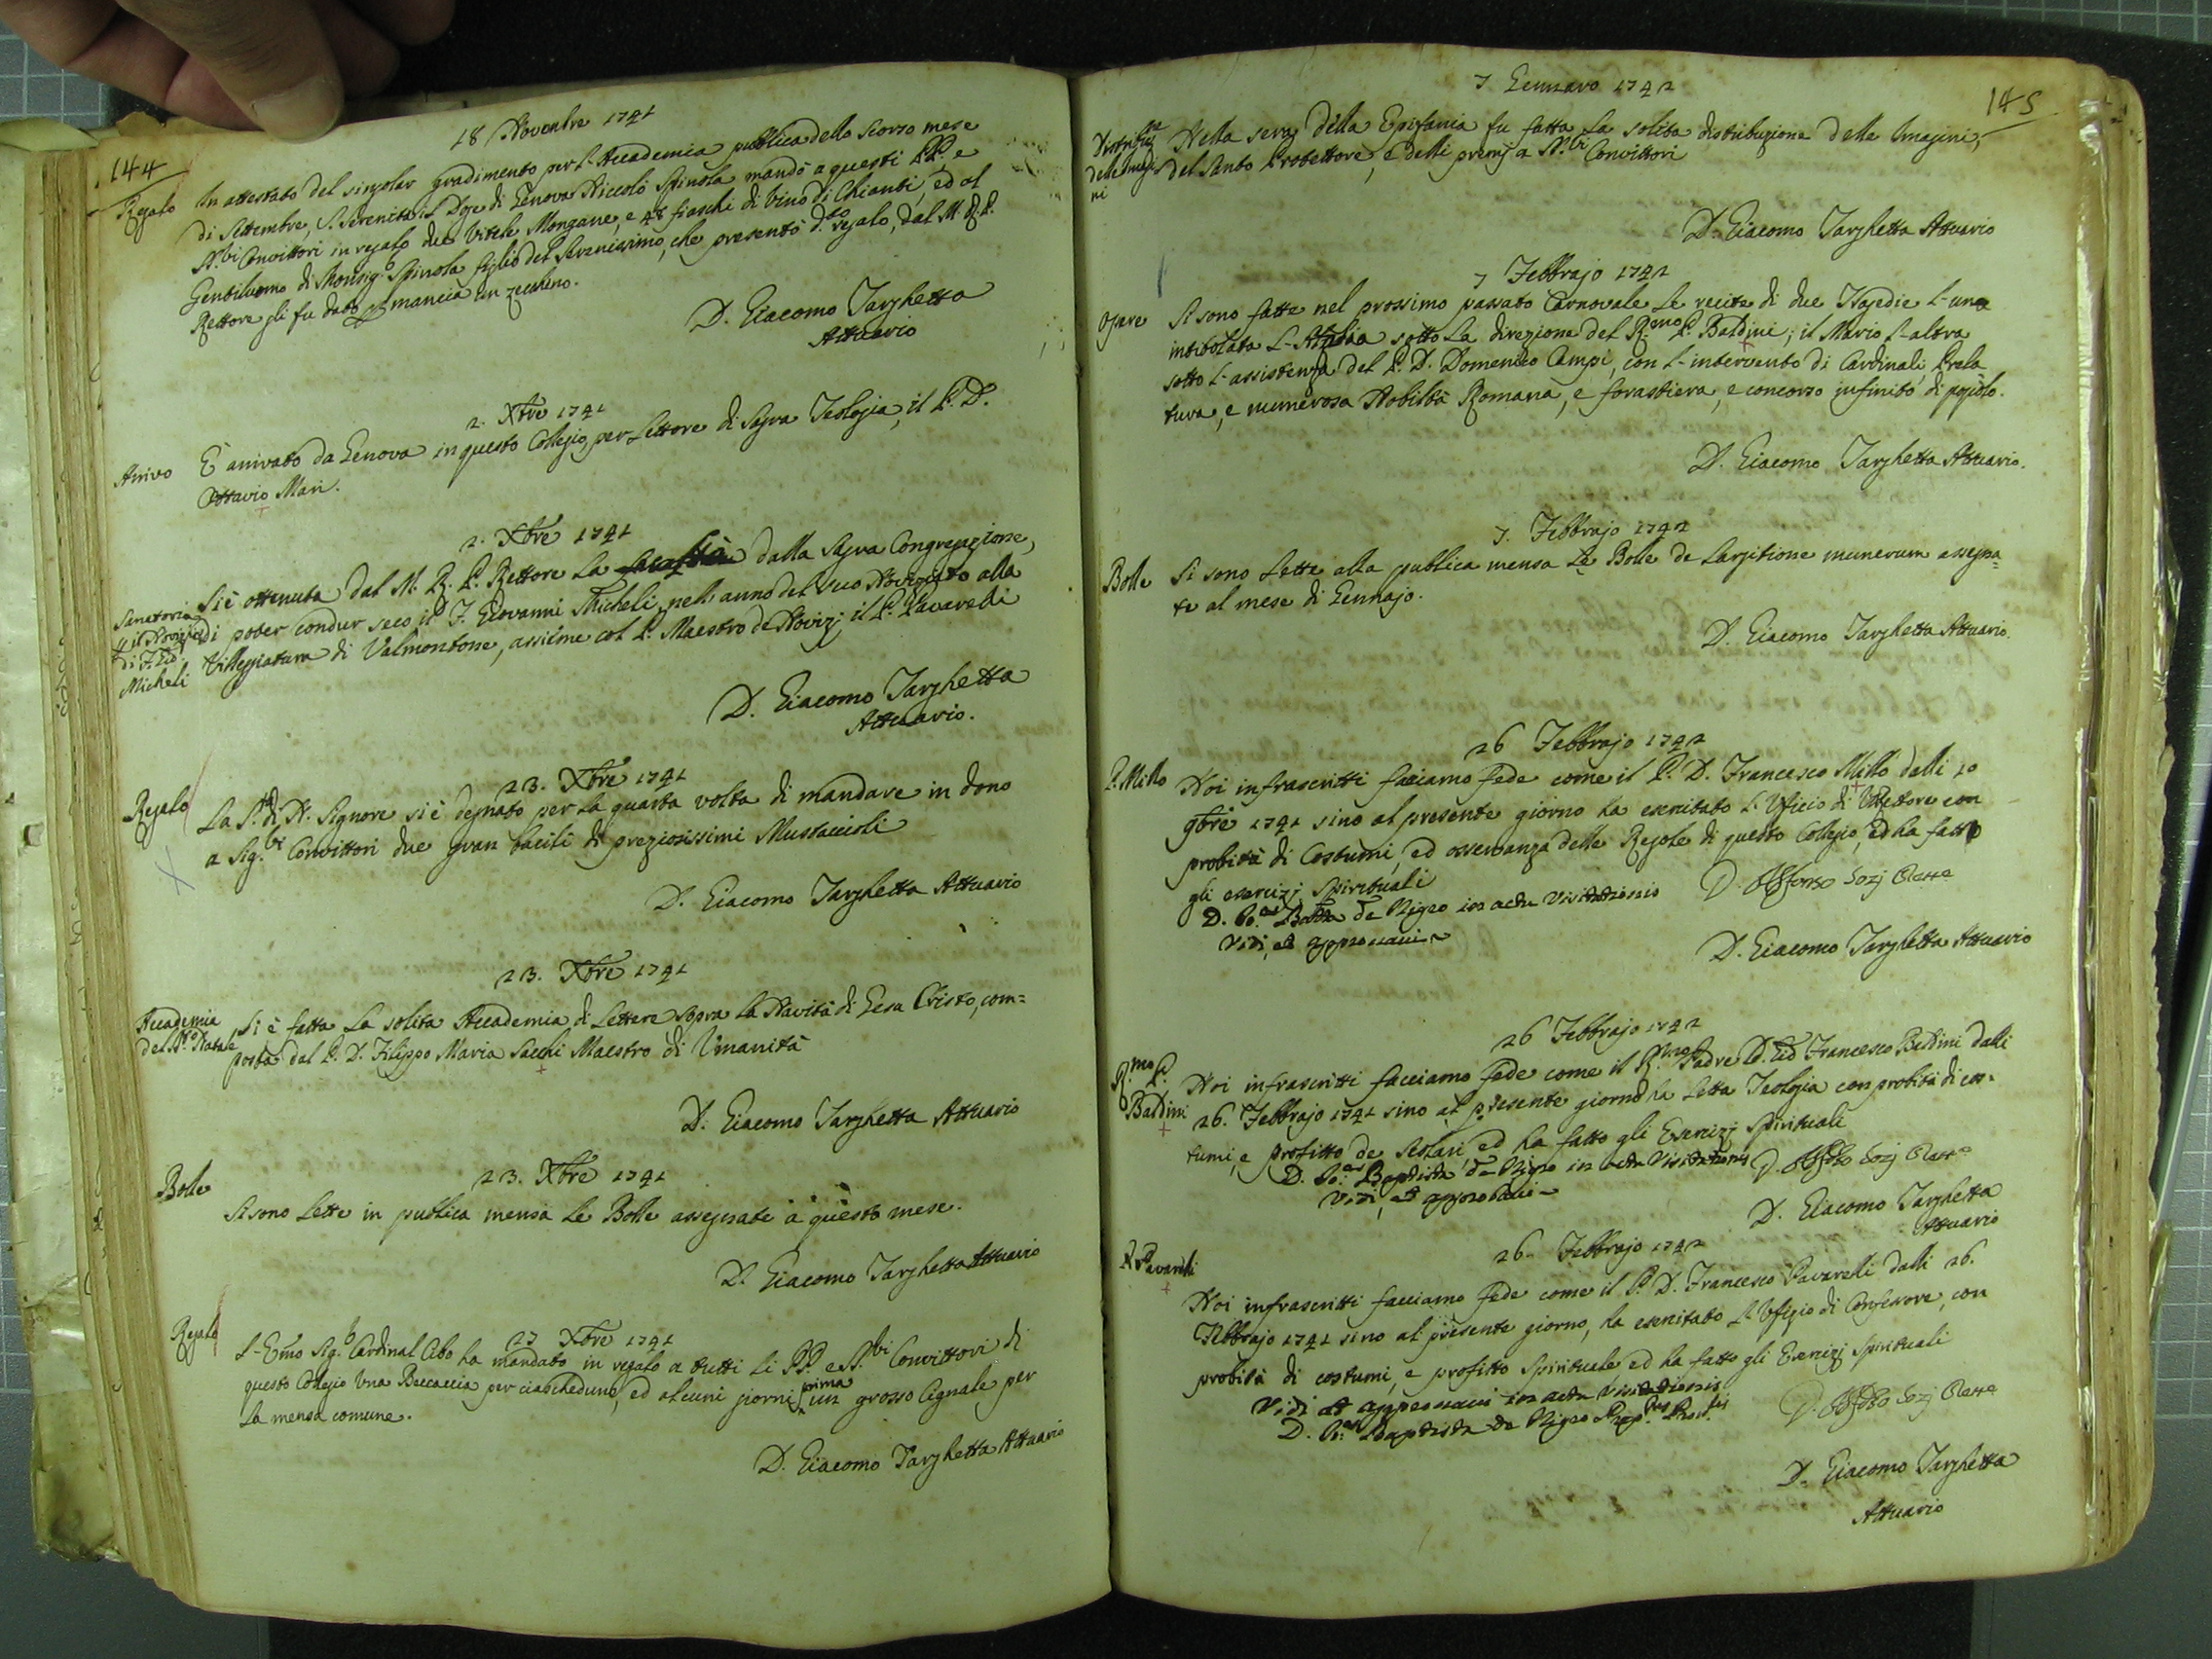 144
18 Novembre 1741
Regalo
In attestato del singolar gradimento per l'Accademia pubblica dello scorso mese
di Settembre, S. Serenità il Doge di Genova Niccolò Spinola mandò a questi PP. e
SS.ri Convittori in regalo due Vitele Mongane, e 48 fiaschi di Vino di Chianti, ed al
Gentiluomo di Monsig.r Spinola figlio del Serenissimo, che presentò d.to regalo, dal M. R. P.
Rettore gli fu dato per mancia un zecchino.
D. Giacomo Targhetta
Attuario
2. Xbre 1741
Arivo
È arrivato da Genova in questo Collegio, per Lettore di Sagra Teologia, il P. D.
Ottavio Mari.
2. Xbre 1741
Sanatoria
p il Novizio
di F. Gio
Micheli
Si è ottenuta dal M. R. P. Rettore la dalla Sagra Congregazione,
di poter condur seco il F. Giovanni Micheli, nell'anno del suo Noviziato alla
Villeggiatura di Valmontone, assieme col P. Maestro de Novizj il P. Pavarelli
D. Giacomo Targhetta
Attuario.
23. Xbre 1741
Regalo
La S.tà di N. Signore si è degnato per la quarta volta di mandare in dono
a Sig.ri Convittori due gran bacili di preziosissimi Mustaccioli
D. Giacomo Targhetta Attuario
23. Xbre 1741
Accademia
del S.o Natale
Si è fatta la solita Accademia di Lettere sopra la Navità di Gesu Cristo, com=
posta dal P. D. Filippo Maria Sacchi Maestro di Umanità
D. Giacomo Targhetta Attuario
23. Xbre 1741
Bolle
Si sono lette in publica mensa le Bolle assegnate à questo mese.
D. Giacomo Targhetta Attuario
27 Xbre 1741
Regalo
L'Emo Sig.r Cardinal Cibo ha mandato in regalo a tutti li PP. e SS.ri Convittori di
questo Collegio una Beccaccia per ciascheduno, ed alcuni giorni prima un grosso Cignale per
la mensa comune.
D. Giacomo Targhetta Attuario
145
7 Gennaro 1742
delle Imagi
ni
Nella sera della Epifania fu fatta la solita distribuzione delle Imagini,
del Santo Protettore, e delli premj a SS.ri Convittori
D. Giacomo Targhetta Attuario
7 Febbrajo 1742
Opere
Si sono fatte nel prossimo passato Carnovale le recite di due Tragedie l'una
intitolata l'Atalia sotto la direzione del R.mo P. Baldini; il Mario l'altra
sotto l'assistenza del P. D. Domenico Campi, con l'intervento di Cardinali Prela
tura, e numerosa Nobiltà Romana, e forastiera, e concorso infinito di popolo.
D. Giacomo Targhetta Attuario.
7. Febbrajo 1742
Bolle
Si sono Lette alla publica mensa le Bolle de Largitione munerum assegna=
te al mese di Gennajo.
D. Giacomo Targhetta Attuario.
26 Febbrajo 1742
P. Millo
Noi infrascritti facciamo fede come il P. D. Francesco Millo dalli 20
9bre 1741 sino al presente giorno ha esercitato l'Uficio di V.Rettore con
probità di Costumi, ed osservanza delle Regole di questo Collegio, ed ha fatto
gli esercizj Spirituali
D. Alfonso Sozj Rett.e
D. Jo.es Batta de Nigro in actu Visitationis
Vidi, et approbavi
D. Giacomo Targhetta Attuario
26 Febbrajo 1742
R.mo P.
Baldini
Noi infrascritti facciamo fede come il R.mo Padre D. Gio Francesco Baldini dalli
26. Febbrajo 1741 sino al presente giorno ha letta Teologia con probità di cos-
tumi, e profitto de Scolari, ed ha fatto gli Esercizj Spirituali
D. Jo.es Baptista de Nigro in actu Visitationis
D. Alfonso Sozj Rett.e
Vidi, et approbavi
D. Giacomo Targhetta
Attuario
26. Febbrajo 1742
P. Pavarelli
Noi infrascritti facciamo fede come il P. D. Francesco Pavarelli dalli 26.
Febbrajo 1741 sino al presente giorno, ha esercitato l'Ufizio di Confessore, con
probità di costumi, e profitto Spirituale ed ha fatto gli Esercizj Spirituali
Vidi et approbavi in actu Visitationis
D. Alfonso Sozj Rett.e
D. Jo.es Baptista de Nigro Prep.tus Prov.lis
D. Giacomo Targhetta
Attuario